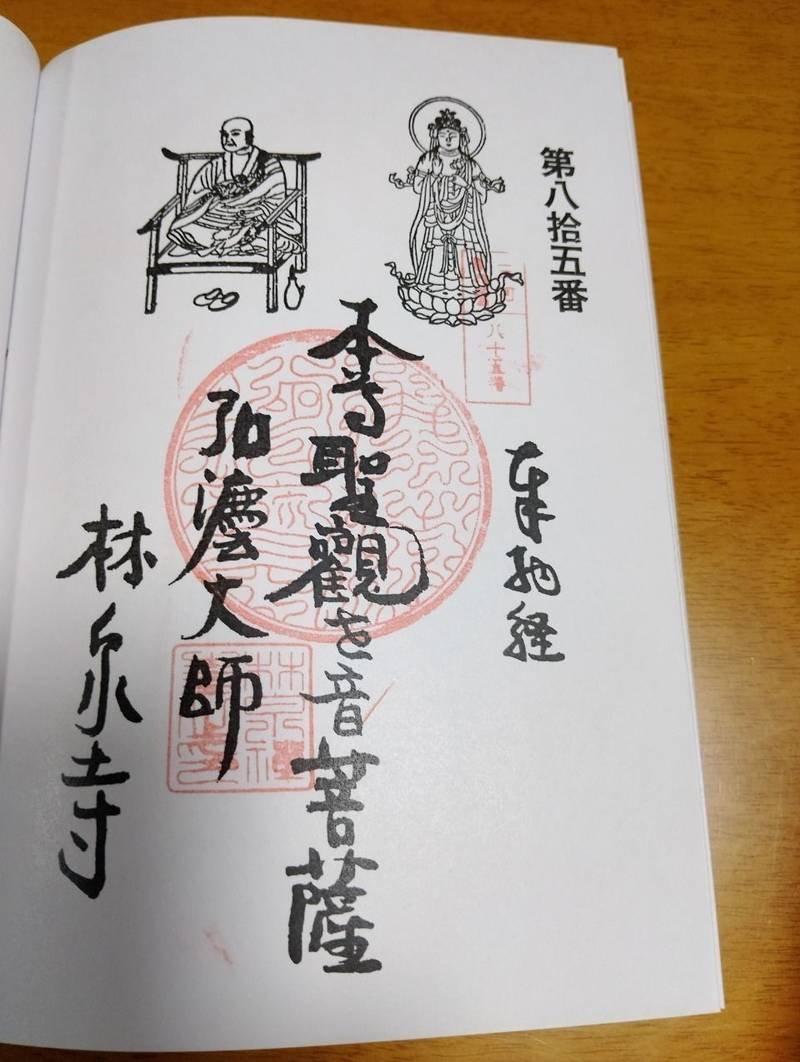 第八拾五番
八十五番
奉納経
本尊聖觀世音菩薩
弘灋大師
林泉寺